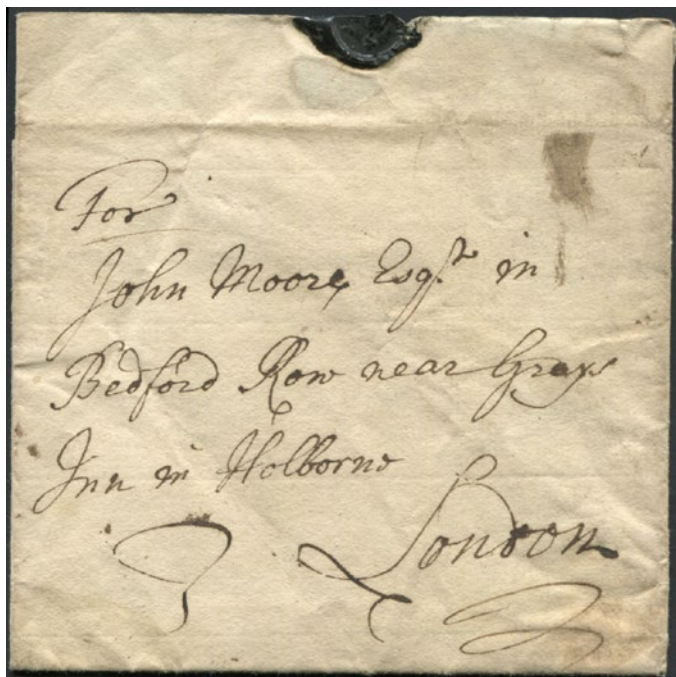 For
John Moore Esqr in
Bedford Row near Grays
Inn in Holborne
London